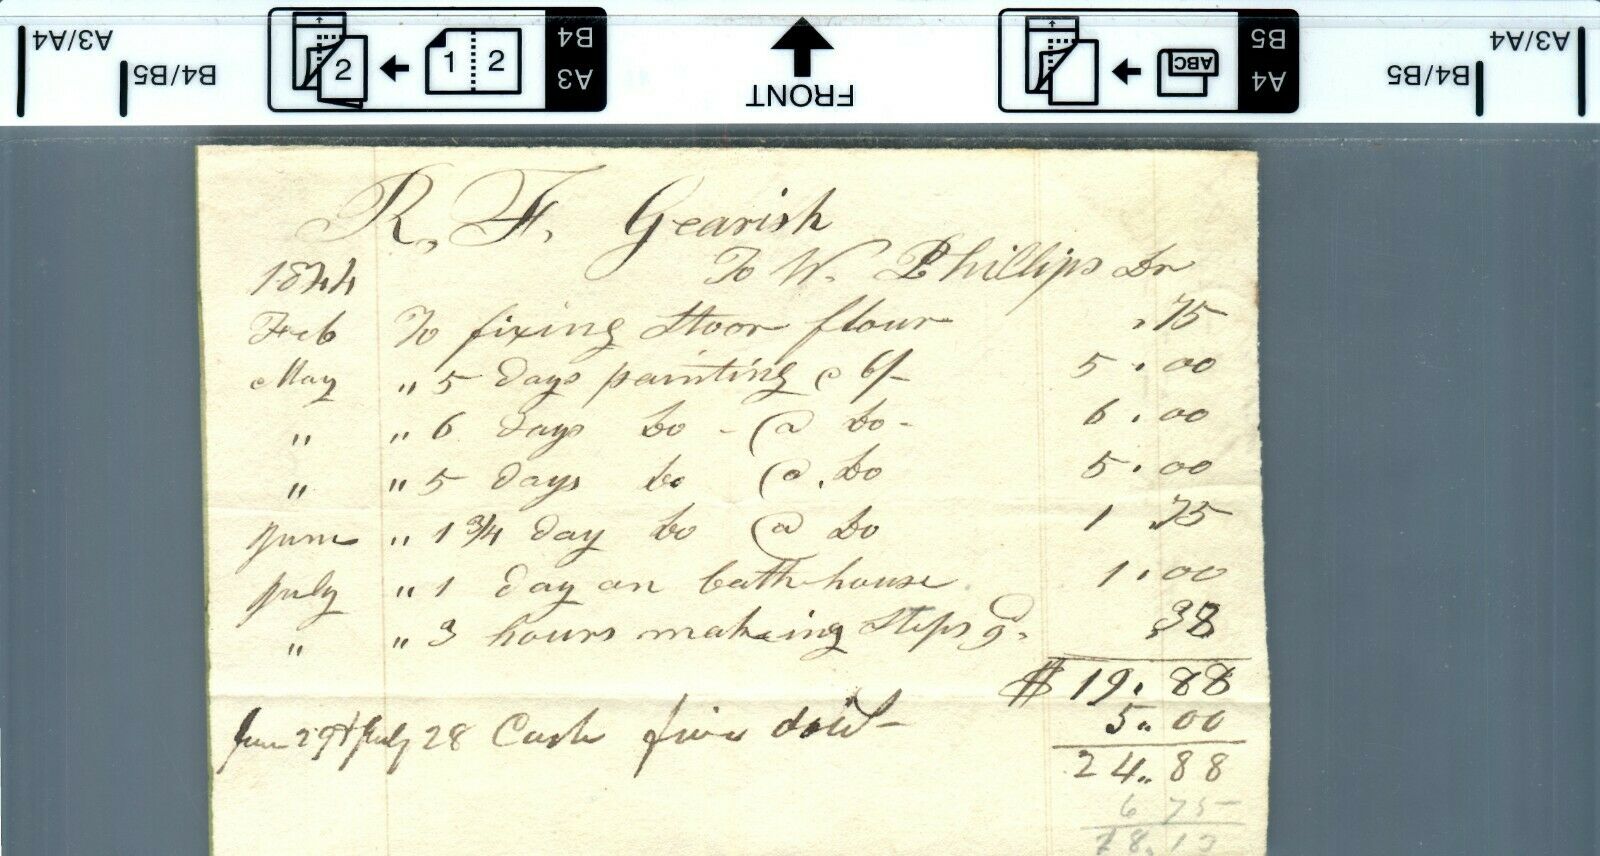 A3/A4
B4/B5
2
1 2
B4
A3
FRONT
ABC
B5
A4
B4/B5
A3/A4
R. F. Gearish
1844 To W. Phillips Dr
Feb To fixing Stoor flour .75
May " 5 days painting @ 6/- 5.00
" " 6 days Do - @ Do - 6.00
" " 5 days Do @ Do 5.00
June " 1 3/4 day Do @ Do 1.75
July " 1 day on bath house 1.00
" " 3 hours making Steps .38
$ 19.88
June 29 & July 28 Cash five doll 5.00
24.88
6 75
18.13